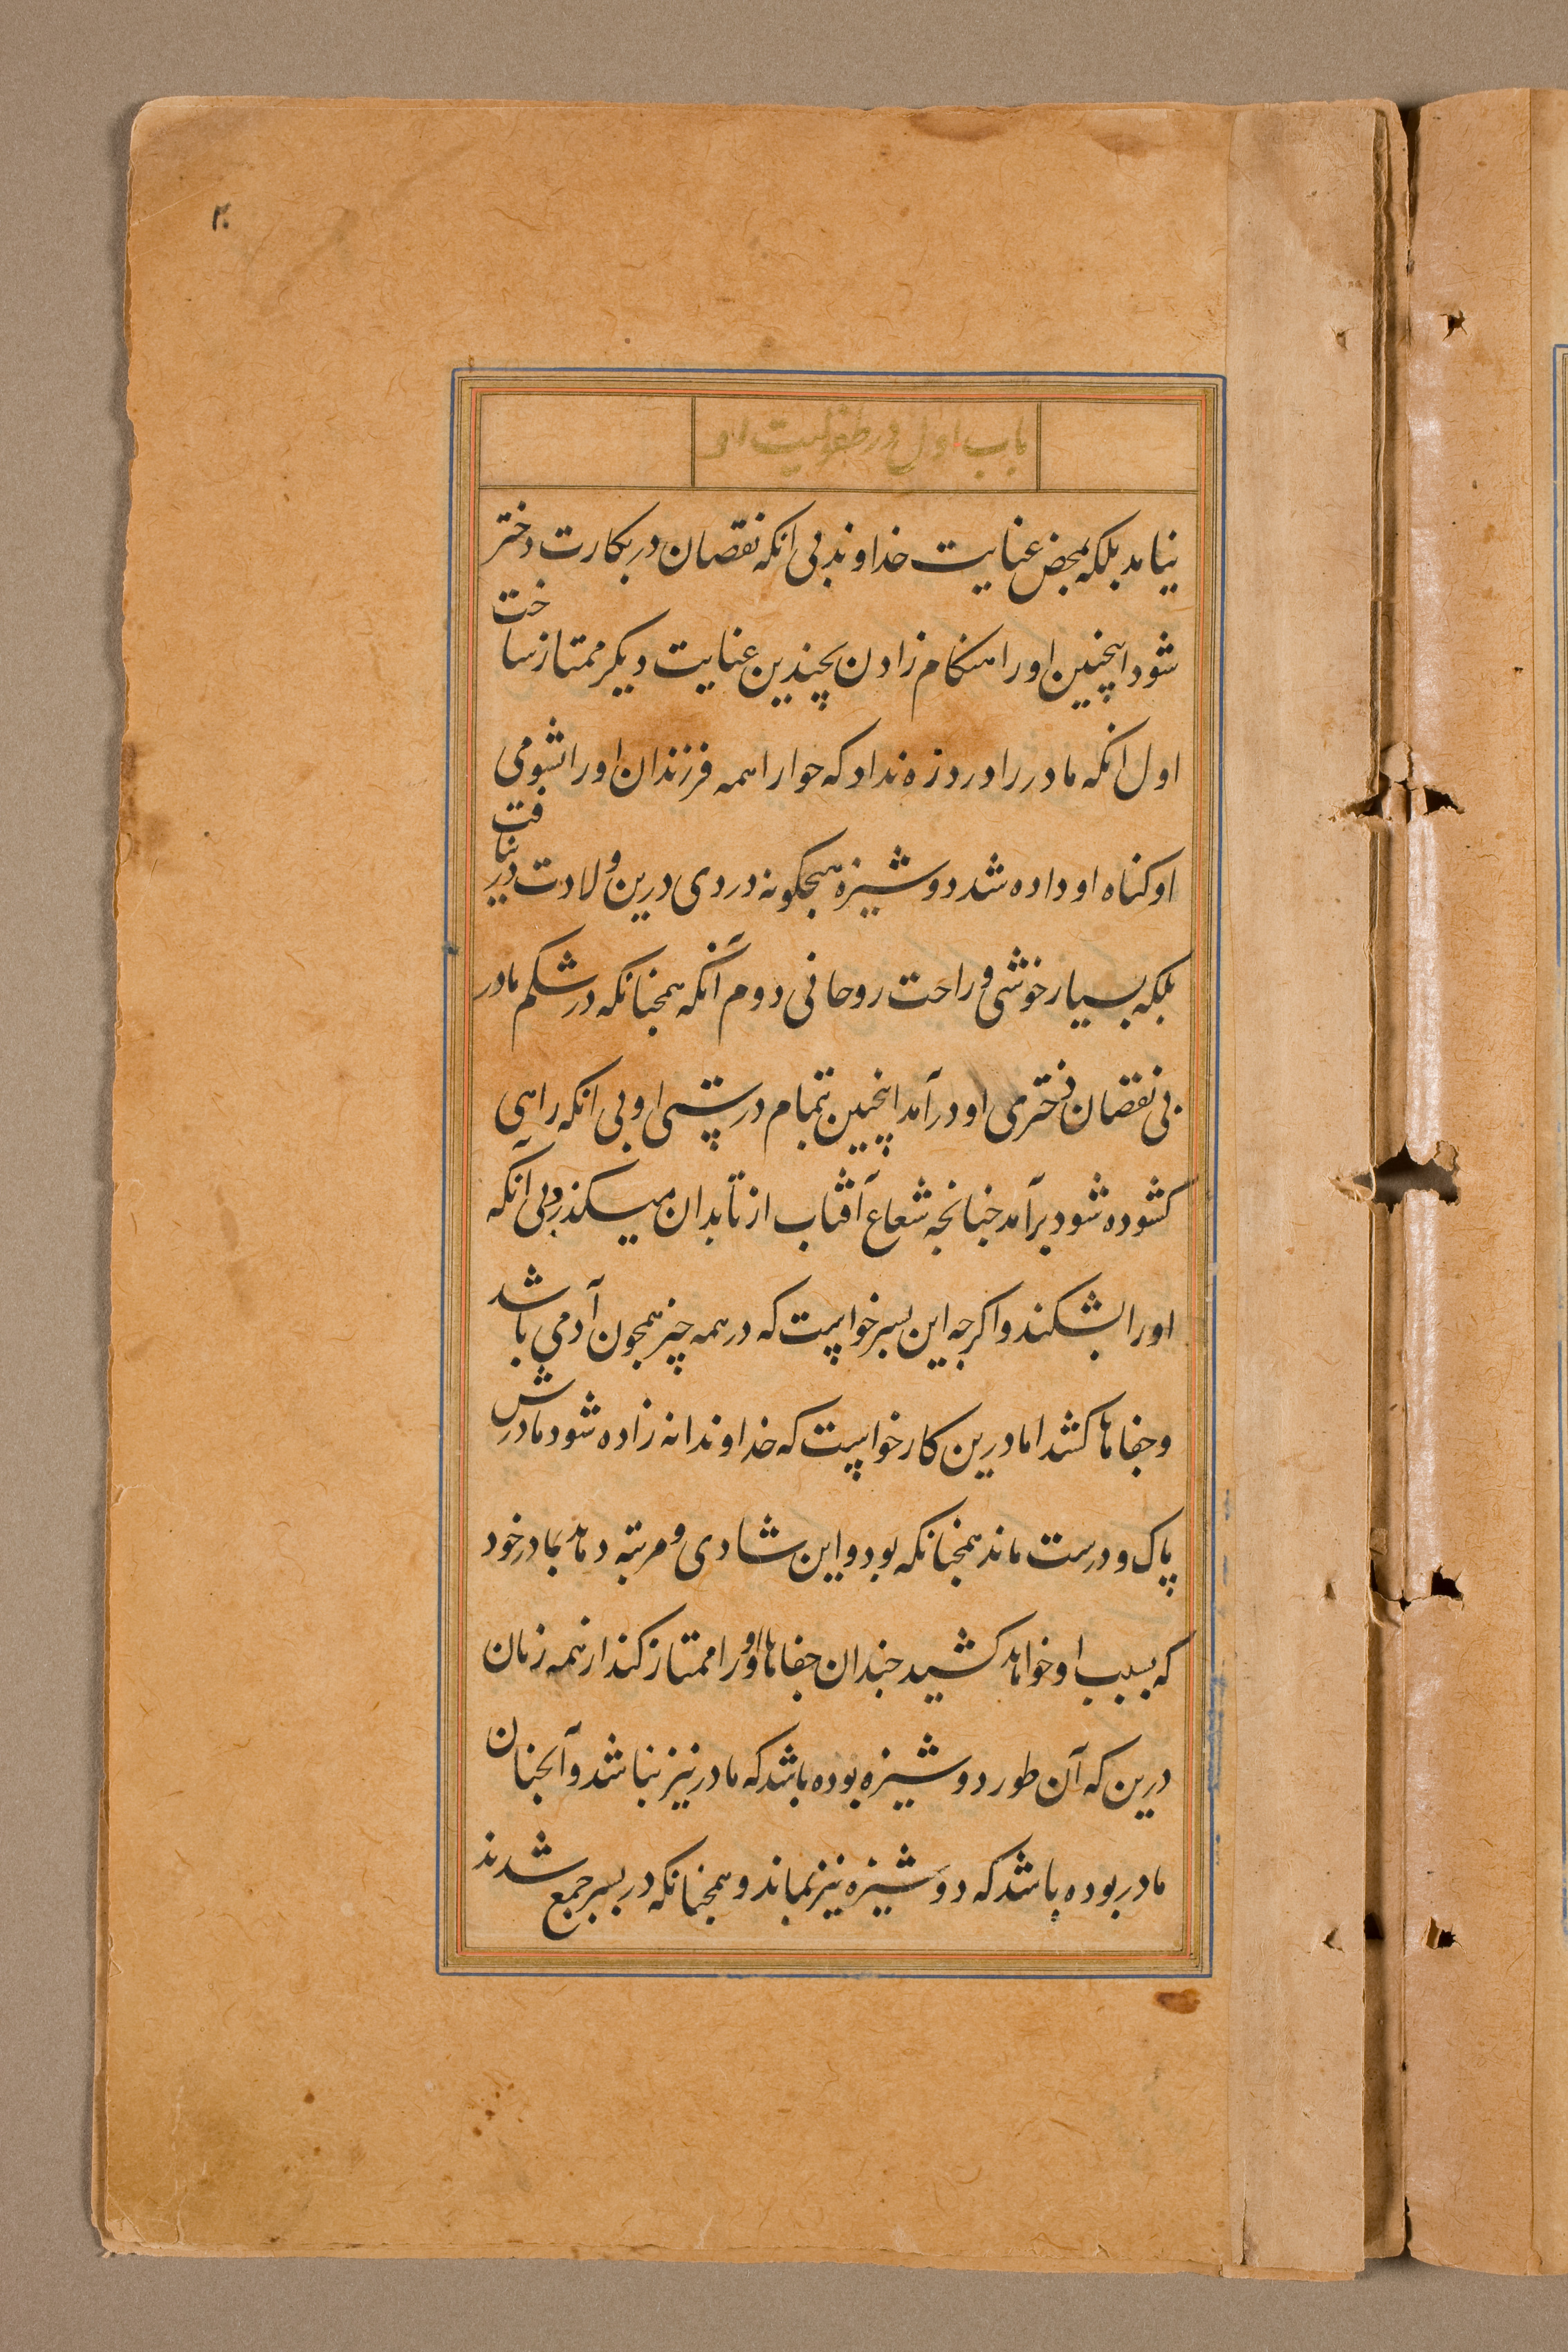 ۲۰
باب اول در طفولیت او
نیامد بلکه بمحض عنایت خداوند بی انکه نقصان در بکارت دختر
شود اینچنین او را هنکام زادن بچندین عنایت دیکر ممتاز ساخت
اول انکه مادر را درد زه نداد که حوا را همه فرزندان او را بشومی
او کناه او داده شد دوشیزه هیجکونه دردی درین ولادت درنیافت
بلکه بسیار خوشی و راحت روحانی دوم آنکه همجنانکه در شکم مادر
بی نقصان دختری او درآمد اینچنین بتمام درستی او بی انکه راهی
کشوده شود برآمد جنانجه شعاع آفتاب از تابدان میکذرد بی آنکه
او را بشکند و اکرجه این بسر خواست که در همه چیز همجون آدمی باشد
و جفاها کشد اما درین کار خواست که خداوندانه زاده شود مادرش
پاک و درست ماند همجنانکه بود و این شادی و مرتبه دهد بمادر خود
که بسبب او خواهد کشید جندان جفاها و او را ممتاز کند از همه زنان
درین که آن طور دوشیزه بوده باشد که مادر نیز نباشد و آنجنان
مادر بوده باشد که دوشیزه نیز نماند و همجنانکه در بسر جمع شدند